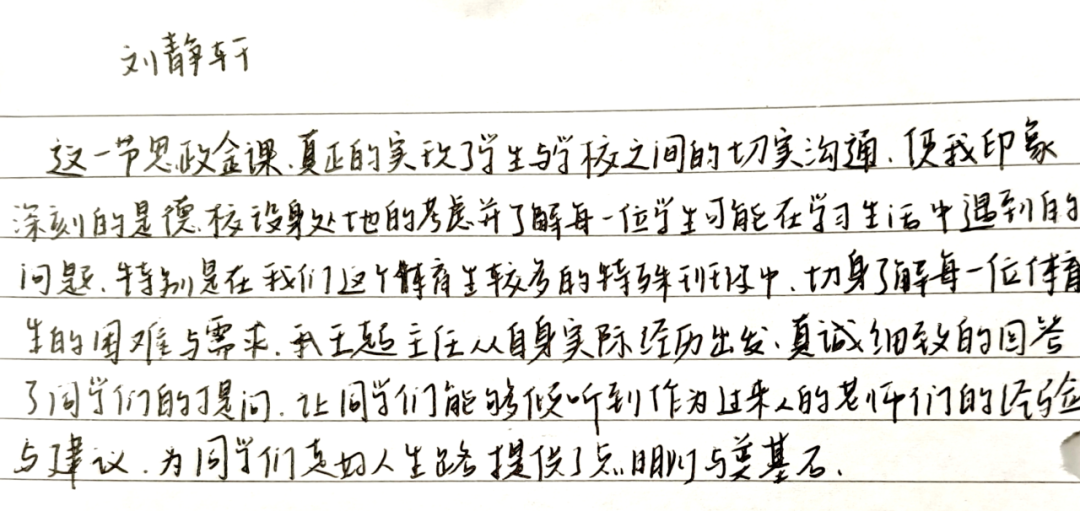 刘静轩
这一节思政金课、真正的实现了学生与学校之间的切实沟通、使我印象
深刻的是德校设身处地的考虑并了解每一位学生可能在学习生活中遇到的
问题、特别是在我们这个体育生较多的特殊班级中、切身了解每一位体育
生的困难与需求、王超主任从自身实际经历出发、真诚细致的回答
了同学们的提问、让同学们能够倾听到作为过来人的老师们的经验
与建议、为同学们的人生路提供了点明灯与奠基石、